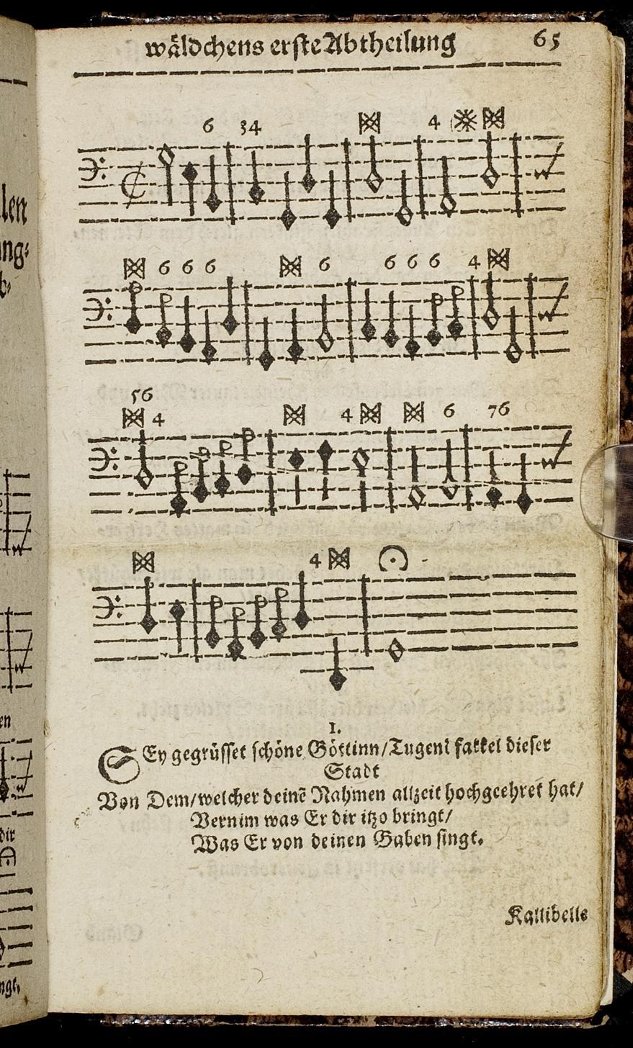 wäldchens erste Abtheilung 65
6 34 4
6 6 6 6 6 6 6 4
56
4 4 6 76
4
1.
SEy gegrüsset schöne Göttinn/Tugent fakkel dieser
Stadt
Von Dem/welcher deinē Nahmen allzeit hochgeehret hat/
Vernim was Er dir itzo bringt/
Was Er von deinen Gaben singt.
Kallibelle